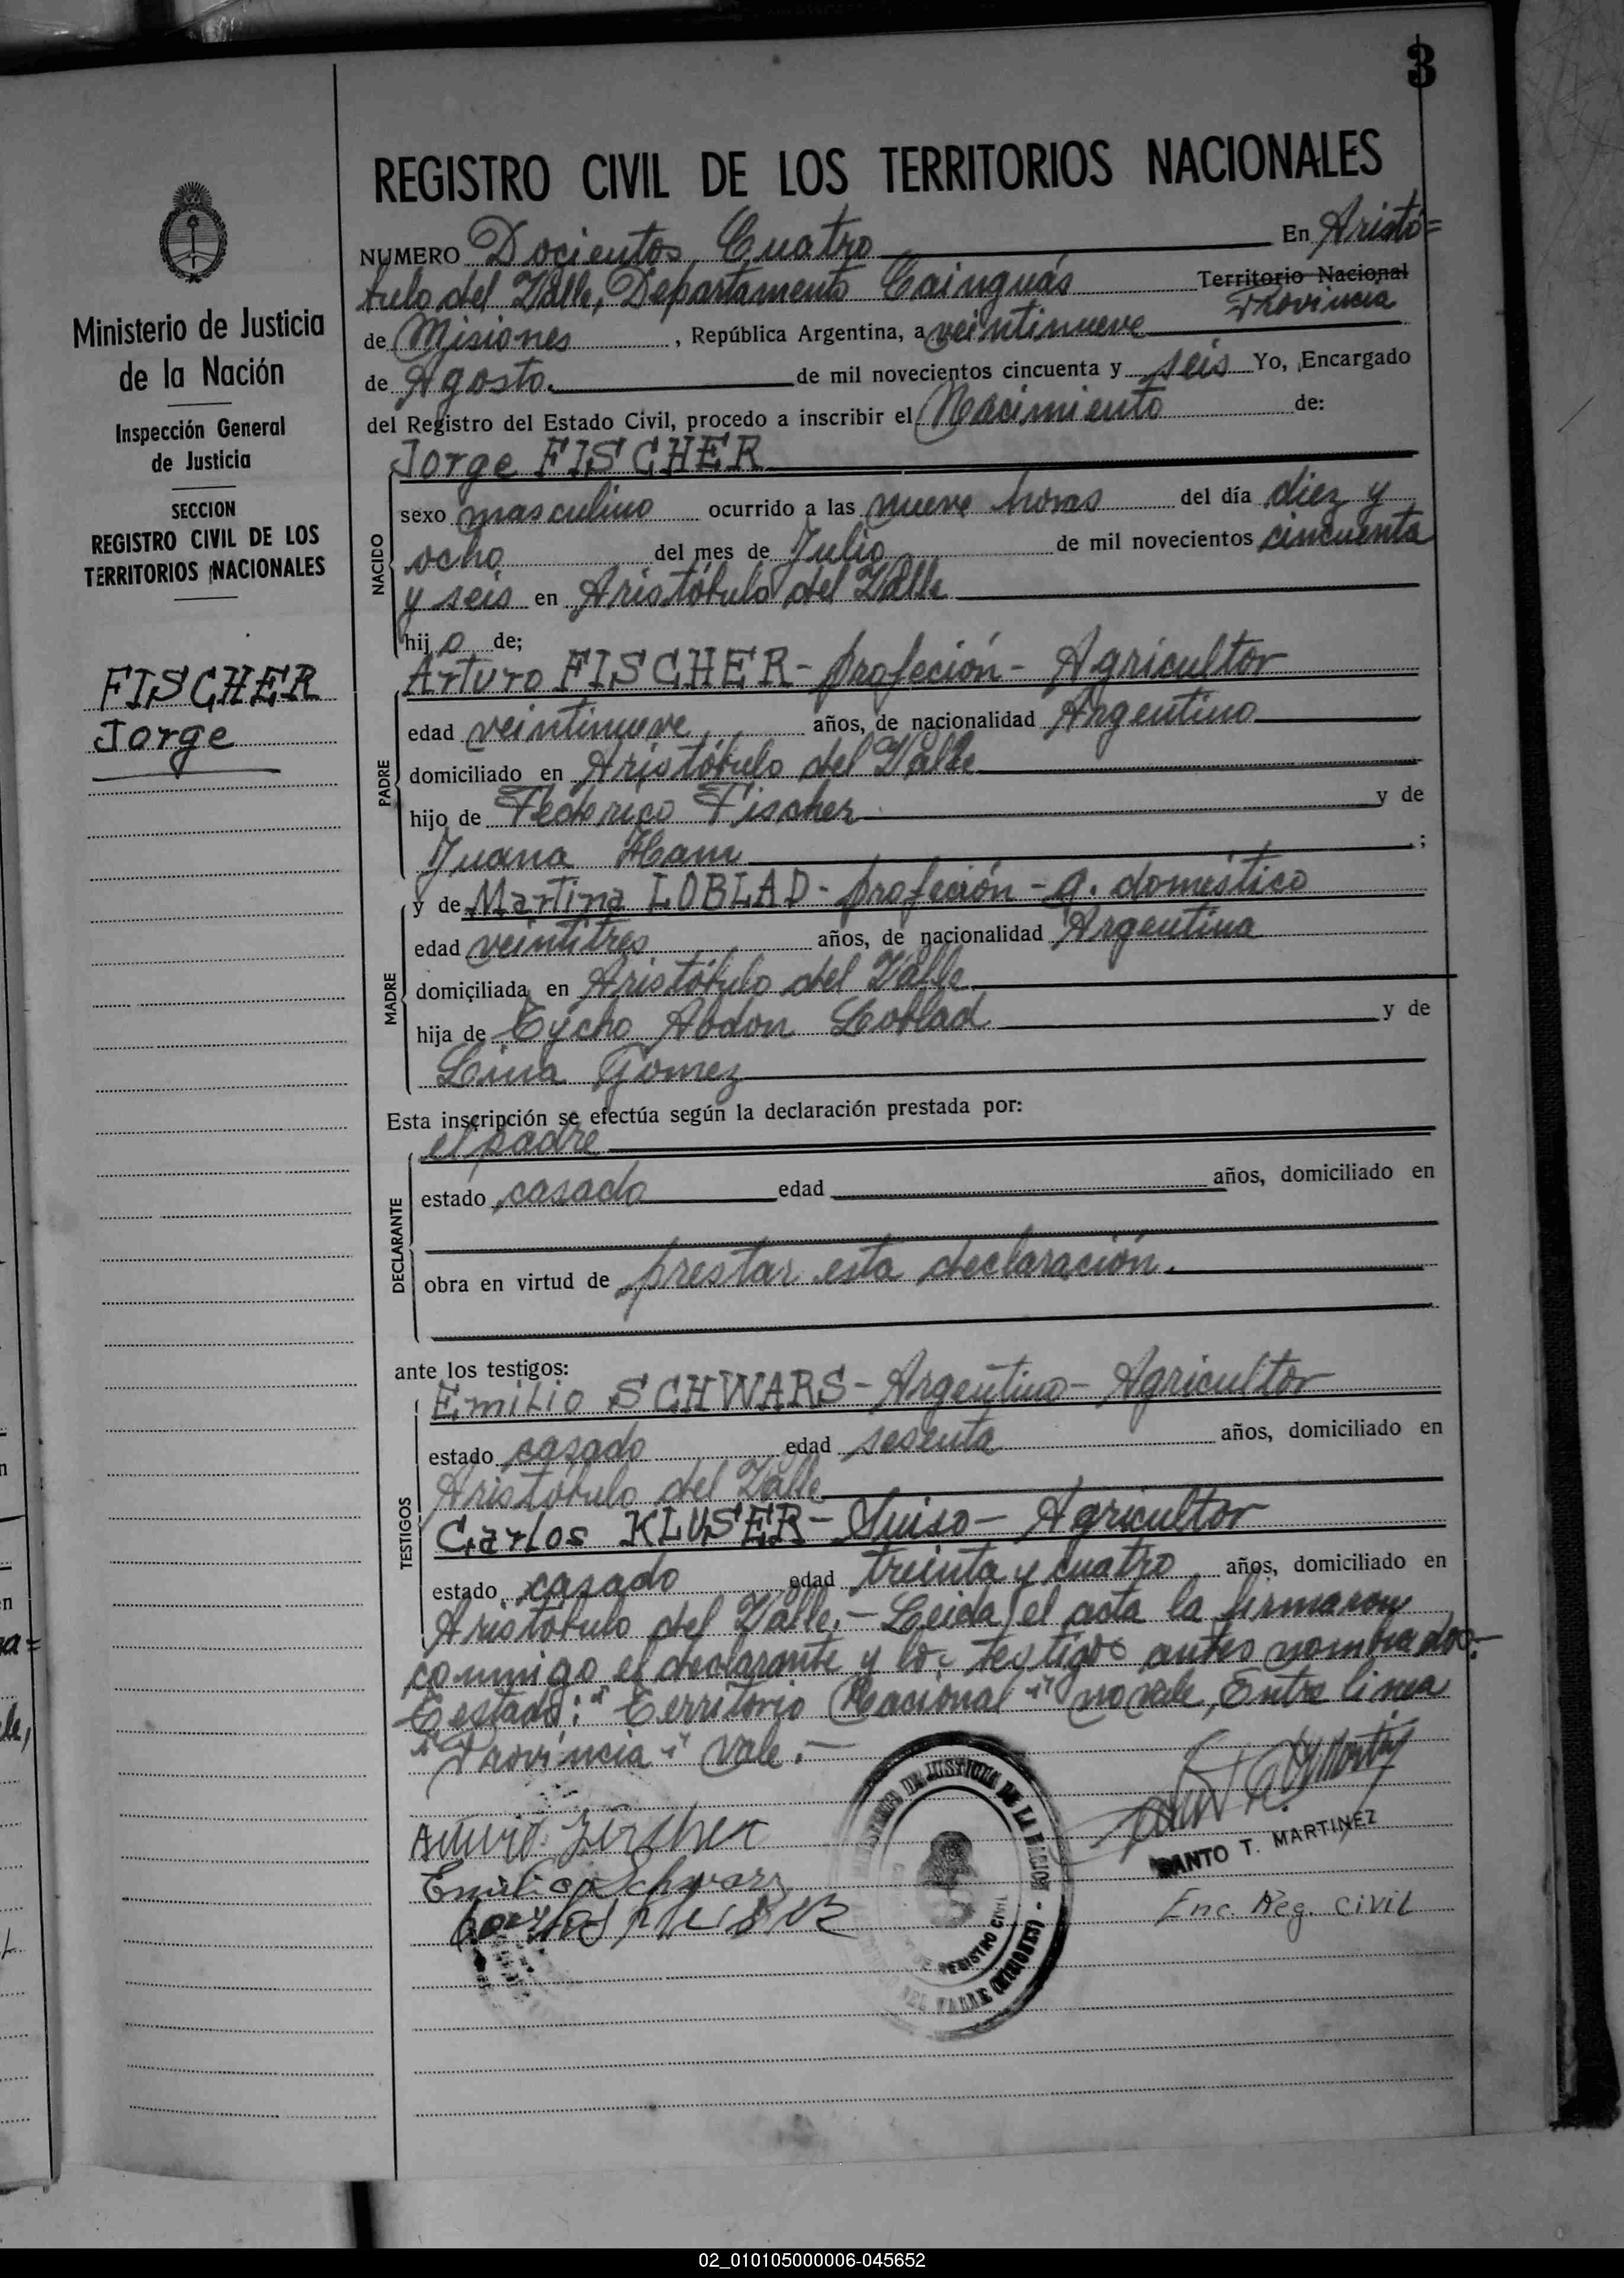 3
REGISTRO CIVIL DE LOS TERRITORIOS NACIONALES
Ministerio de Justicia
de la Nación
Inspección General
de Justicia
SECCION
REGISTRO CIVIL DE LOS
TERRITORIOS NACIONALES
FISCHER
Jorge
NUMERO Docientos Cuatro En Aristó=
bulo del Valle, Departamento Cainguás Territorio Nacional
Provincia
de Misiones, República Argentina, a veintinueve
de Agosto. de mil novecientos cincuenta y seis Yo, Encargado
del Registro del Estado Civil, procedo a inscribir el Nacimiento de:
NACIDO
Jorge FISCHER
sexo masculino ocurrido a las nueve horas del día diez y
ocho del mes de Julio de mil novecientos cincuenta
y seis en Aristóbulo del Valle
hij o de;
PADRE
Arturo FISCHER - profeción - Agricultor
edad veintinueve años, de nacionalidad Argentino
domiciliado en Aristóbulo del Valle
hijo de Federico Fischer y de
Juana Ham ;
MADRE
y de Martina LOBLAD - profeción - q. doméstico
edad veintitres años, de nacionalidad Argentina
domiciliada en Aristóbulo del Valle
hija de Tycho Abdon Loblad y de
Lina Gomez
Esta inscripción se efectúa según la declaración prestada por:
DECLARANTE
el padre
estado casado edad años, domiciliado en
obra en virtud de prestar esta declaración.
ante los testigos:
TESTIGOS
Emilio SCHWARS - Argentino - Agricultor
estado casado edad sesenta años, domiciliado en
Aristóbulo del Valle
Carlos KLUSER - Suiso - Agricultor
estado casado edad treinta y cuatro años, domiciliado en
Aristóbulo del Valle. - Leida el acta la firmaron
conmigo el declarante y los testigos antes nombrados.-
Testado: " Territorio Nacional " no vale, Entre linea
" Provincia " Vale. -
Arturo Fischer
Emilio Schwarz
MINISTERIO DE JUSTICIA DE LA NACION
REGISTRO CIVIL
DEL VALLE (MISIONES)
SANTO T. MARTINEZ
Enc. Reg. Civil
02_010105000006-045652